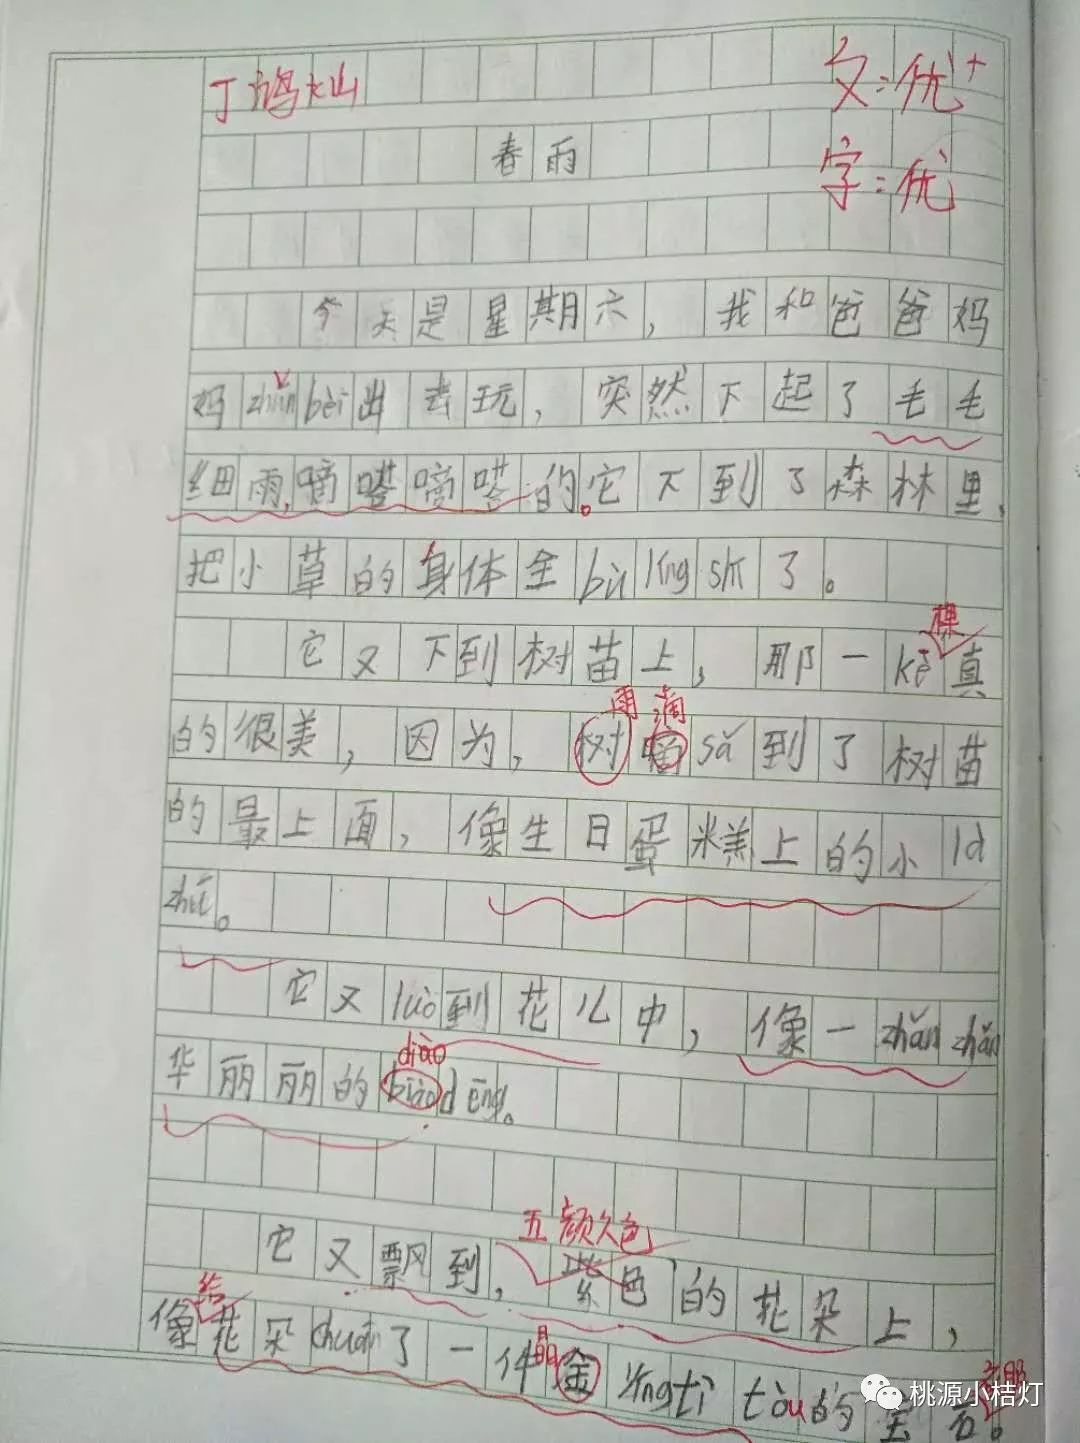 文:优+
字:优
春雨
今天是星期六，我和爸爸妈
妈zhǔnbèi出去玩，突然下起了毛毛
细雨，嘀嗒嘀嗒的。它下到了森林里，
把小草的身体全bù líng shī了。
棵
它又下到树苗上，那一kē真
雨滴
的很美，因为，树嘀sǎ到了树苗
的最上面，像生日蛋糕上的小là
zhú。
它又luò到花儿中，像一zhǎn zhǎn
diào
华丽丽的biàodēng。
五颜六色
它又飘到，紫色的花朵上，
给
像花朵chuān了一件金yīngtìtòu的宝石。
晶
桃源小桔灯